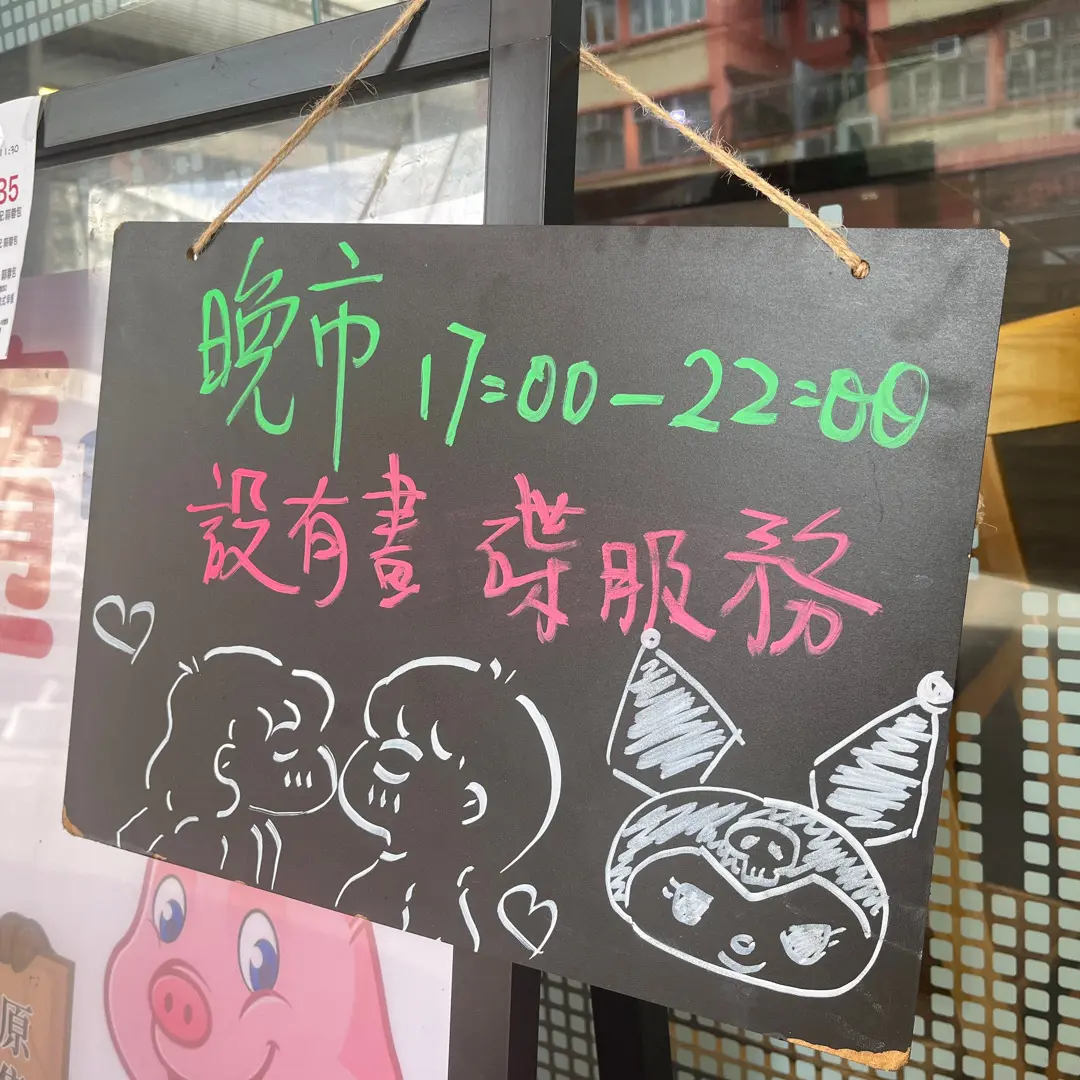 晚市 17:00-22:00
設有畫碟服務
1:30
35
原